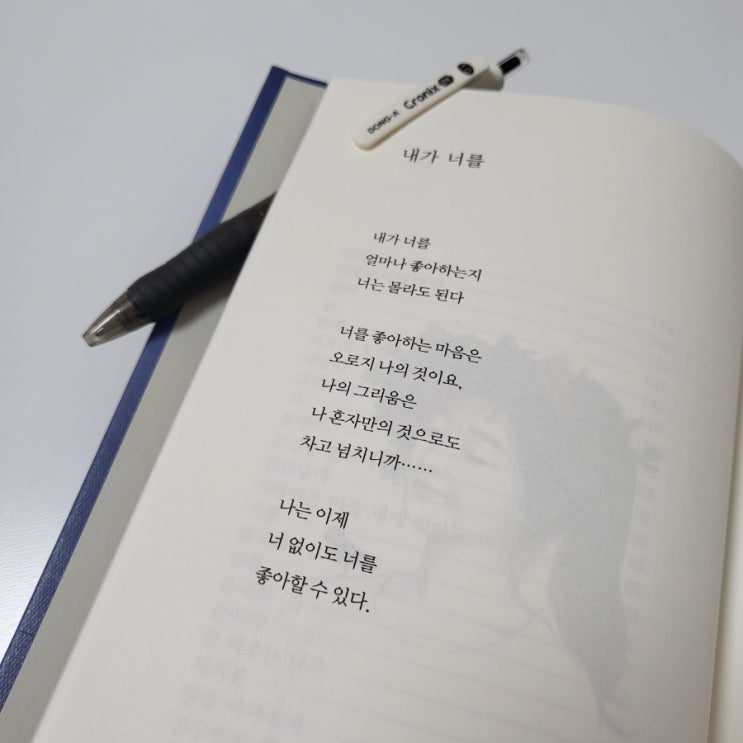 DONG-A Cronix
내가 너를
내가 너를
얼마나 좋아하는지
너는 몰라도 된다
너를 좋아하는 마음은
오로지 나의 것이요,
나의 그리움은
나 혼자만의 것으로도
차고 넘치니까……
나는 이제
너 없이도 너를
좋아할 수 있다.